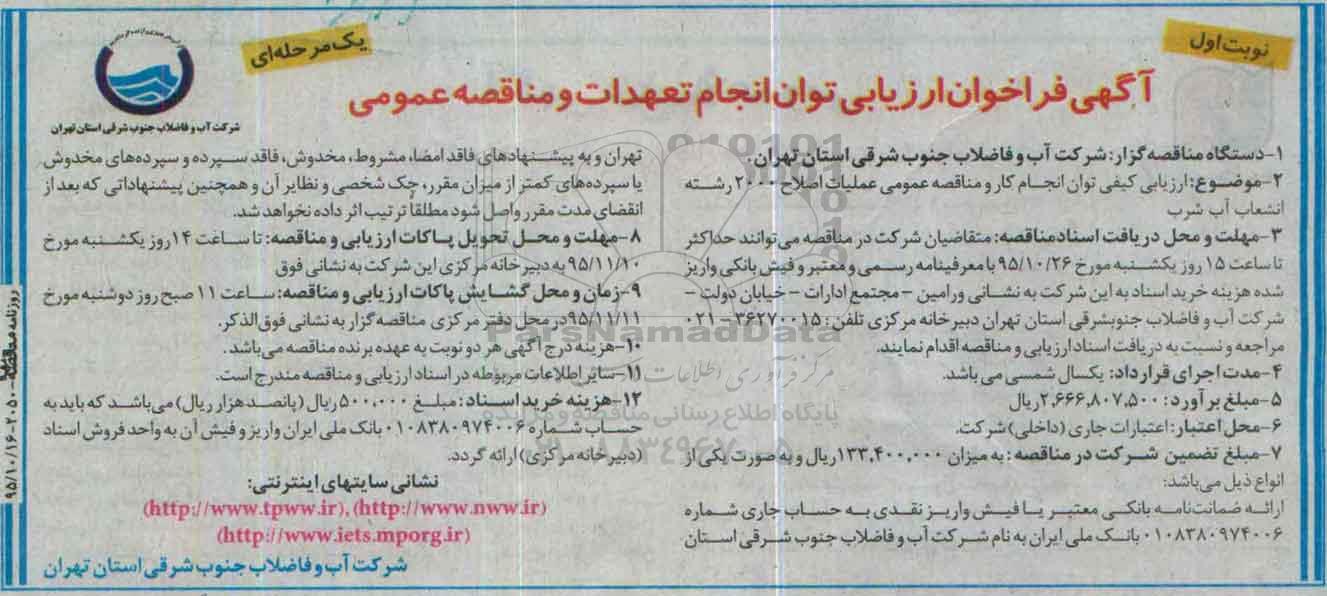 نوبت اول
یک مرحله‌ای
آگهی فراخوان ارزیابی توان انجام تعهدات و مناقصه عمومی
شرکت آب و فاضلاب جنوب شرقی استان تهران
۱-دستگاه مناقصه گزار: شرکت آب و فاضلاب جنوب شرقی استان تهران.
۲-موضوع: ارزیابی کیفی توان انجام کار و مناقصه عمومی عملیات اصلاح ۲۰۰۰ رشته
انشعاب آب شرب
۳-مهلت و محل دریافت اسناد مناقصه: متقاضیان شرکت در مناقصه می‌توانند حداکثر
تا ساعت ۱۵ روز یکشنبه مورخ ۹۵/۱۰/۲۶ با معرفینامه رسمی و معتبر و فیش بانکی واریز
شده هزینه خرید اسناد به این شرکت به نشانی ورامین - مجتمع ادارات - خیابان دولت -
شرکت آب و فاضلاب جنوبشرقی استان تهران دبیرخانه مرکزی تلفن: ۳۶۲۷۰۰۱۵-۰۲۱
مراجعه و نسبت به دریافت اسناد ارزیابی و مناقصه اقدام نمایند.
۴-مدت اجرای قرارداد: یکسال شمسی می باشد.
۵-مبلغ برآورد: ۲,۶۶۶,۸۰۷,۵۰۰ ریال
۶-محل اعتبار: اعتبارات جاری (داخلی) شرکت.
۷-مبلغ تضمین شرکت در مناقصه: به میزان ۱۳۳,۴۰۰,۰۰۰ ریال و به صورت یکی از
انواع ذیل می‌باشد:
ارائه ضمانت‌نامه بانکی معتبر یا فیش واریز نقدی به حساب جاری شماره
۰۱۰۸۳۸۰۹۷۴۰۰۶ بانک ملی ایران به نام شرکت آب و فاضلاب جنوب شرقی استان
تهران و به پیشنهادهای فاقد امضا، مشروط، مخدوش، فاقد سپرده و سپرده‌های مخدوش
یا سپرده‌های کمتر از میزان مقرر، چک شخصی و نظایر آن و همچنین پیشنهاداتی که بعد از
انقضای مدت مقرر واصل شود مطلقاً ترتیب اثر داده نخواهد شد.
۸-مهلت و محل تحویل پاکات ارزیابی و مناقصه: تا ساعت ۱۴ روز یکشنبه مورخ
۹۵/۱۱/۱۰ به دبیرخانه مرکزی این شرکت به نشانی فوق
۹-زمان و محل گشایش پاکات ارزیابی و مناقصه: ساعت ۱۱ صبح روز دوشنبه مورخ
۹۵/۱۱/۱۱ در محل دفتر مرکزی مناقصه گزار به نشانی فوق‌الذکر.
۱۰-هزینه درج آگهی هر دو نوبت به عهده برنده مناقصه می‌باشد.
۱۱-سایر اطلاعات مربوطه در اسناد ارزیابی و مناقصه مندرج است.
۱۲-هزینه خرید اسناد: مبلغ ۵۰۰,۰۰۰ ریال (پانصد هزار ریال) می‌باشد که باید به
حساب شماره ۰۱۰۸۳۸۰۹۷۴۰۰۶ بانک ملی ایران واریز و فیش آن به واحد فروش اسناد
(دبیرخانه مرکزی) ارائه گردد.
نشانی سایتهای اینترنتی:
(http://www.tpww.ir),(http://www.nww.ir)
(http://www.iets.mporg.ir)
شرکت آب و فاضلاب جنوب شرقی استان تهران
روزنامه مناقصه ۲۰۵۰-۹۵/۱۰/۱۶
ParsNamadData
پایگاه اطلاع رسانی مناقصه و مزایده